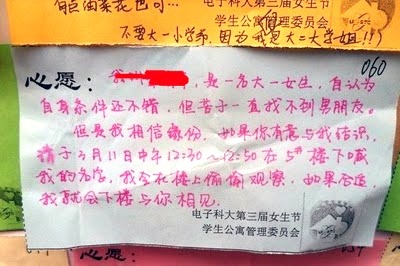 电子科大第三届女生节
学生公寓管理委员会
不要大一小学弟，因为我是大二大学姐!!!
心愿：
060
我叫
，是一名大一女生，自认为
自身条件还不错，但苦于一直找不到男朋友。
但是我相信缘份，如果你有意与我结识，
请于3月11日中午12:30~12:50在5#楼下喊
我的名字，我会在楼上偷偷观察，如果合适，
我就会下楼与你相见。
电子科大第三届女生节
学生公寓管理委员会